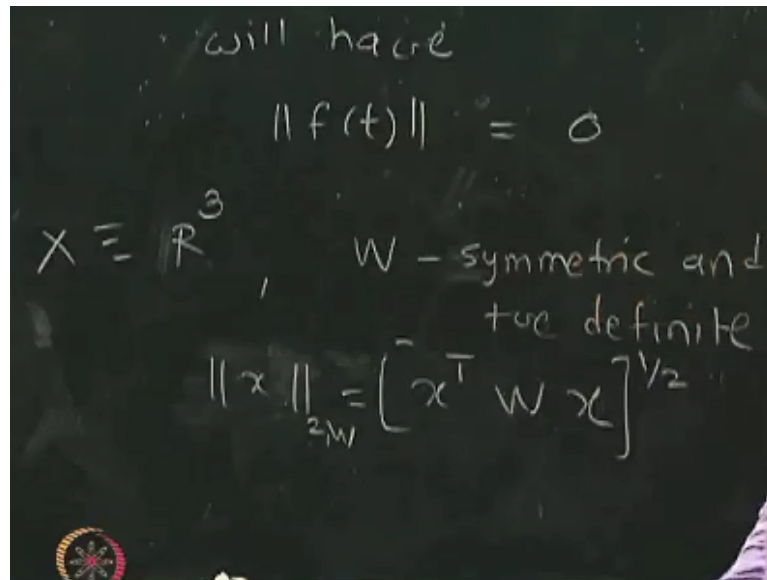 will have
‖ f(t) ‖ = 0
X ≡ R³, W – symmetric and
+ve definite
‖x‖₂,W = [xᵀ W x]^1/2